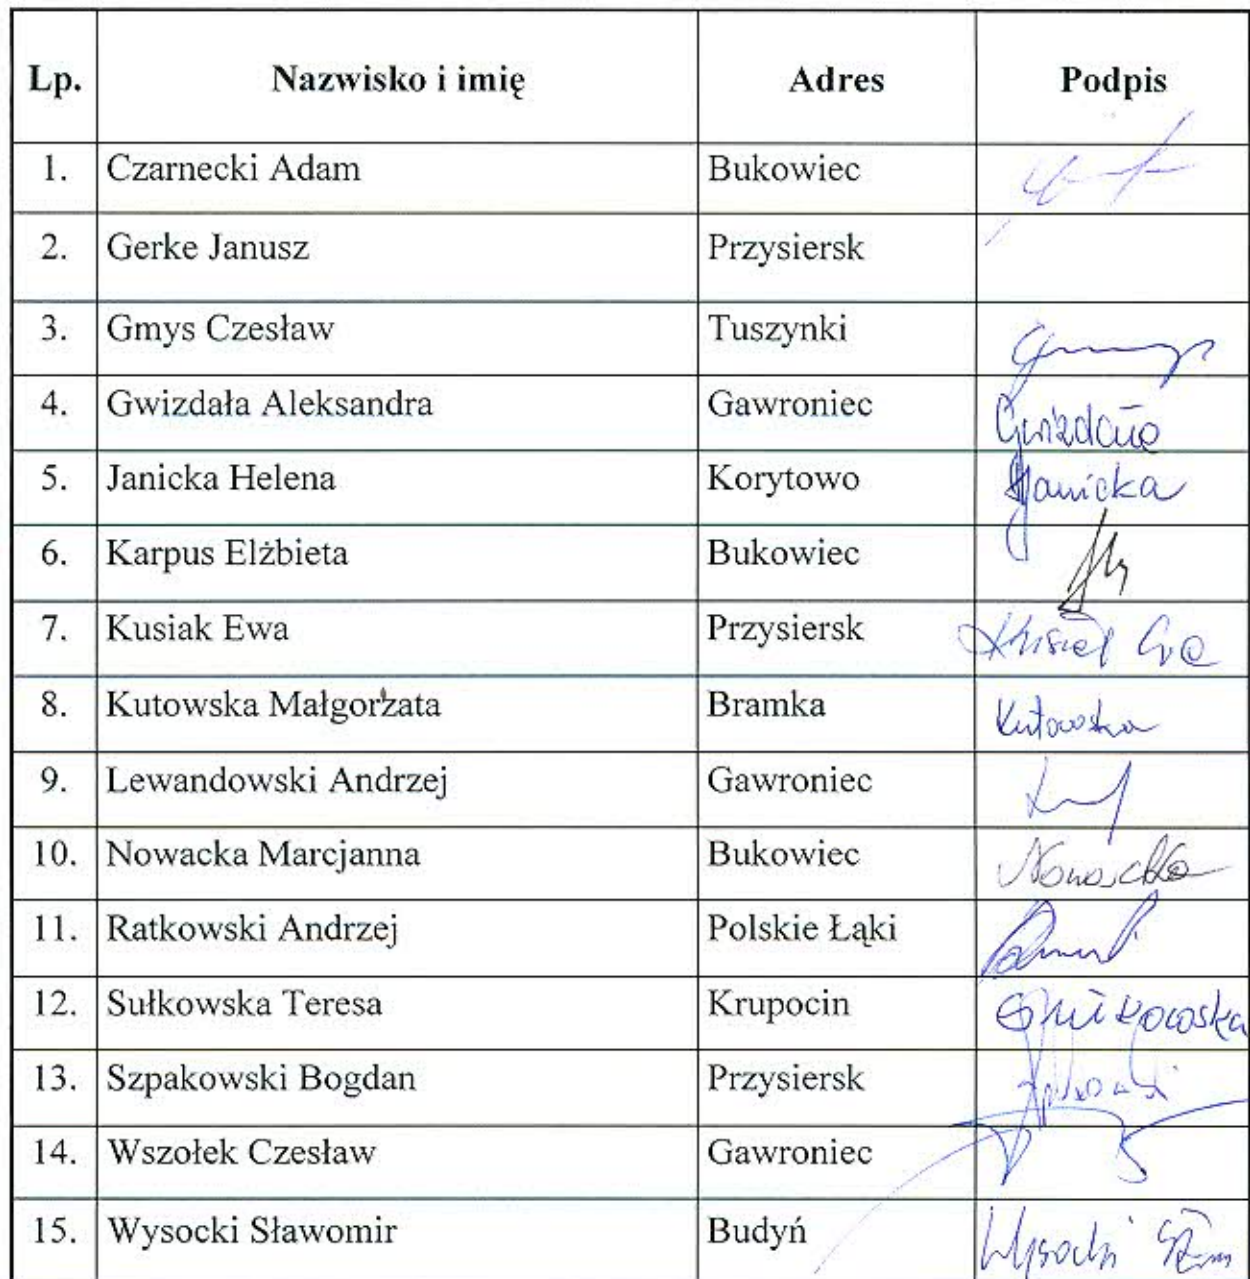 Lp. Nazwisko i imię Adres Podpis
1. Czarnecki Adam Bukowiec
2. Gerke Janusz Przysiersk
3. Gmys Czesław Tuszynki
4. Gwizdała Aleksandra Gawroniec Gwizdała
5. Janicka Helena Korytowo Janicka
6. Karpus Elżbieta Bukowiec
7. Kusiak Ewa Przysiersk Kusiak Ewa
8. Kutowska Małgorzata Bramka Kutowska
9. Lewandowski Andrzej Gawroniec
10. Nowacka Marcjanna Bukowiec Nowacka
11. Ratkowski Andrzej Polskie Łąki
12. Sułkowska Teresa Krupocin Sułkowska
13. Szpakowski Bogdan Przysiersk
14. Wszołek Czesław Gawroniec
15. Wysocki Sławomir Budyń Wysocki